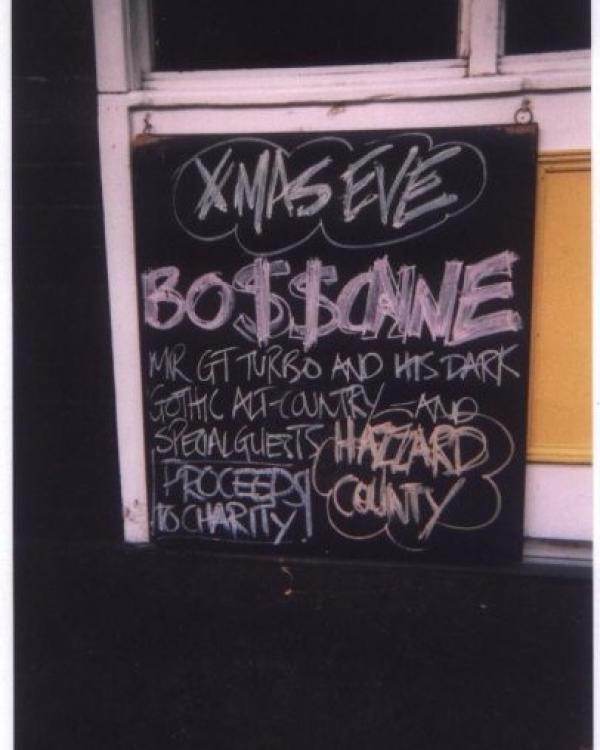 XMAS EVE
BO$$CAINE
MR GT TURBO AND HIS DARK
GOTHIC ALT-COUNTRY - AND
SPECIAL GUESTS HAZZARD
COUNTY
PROCEEDS
TO CHARITY